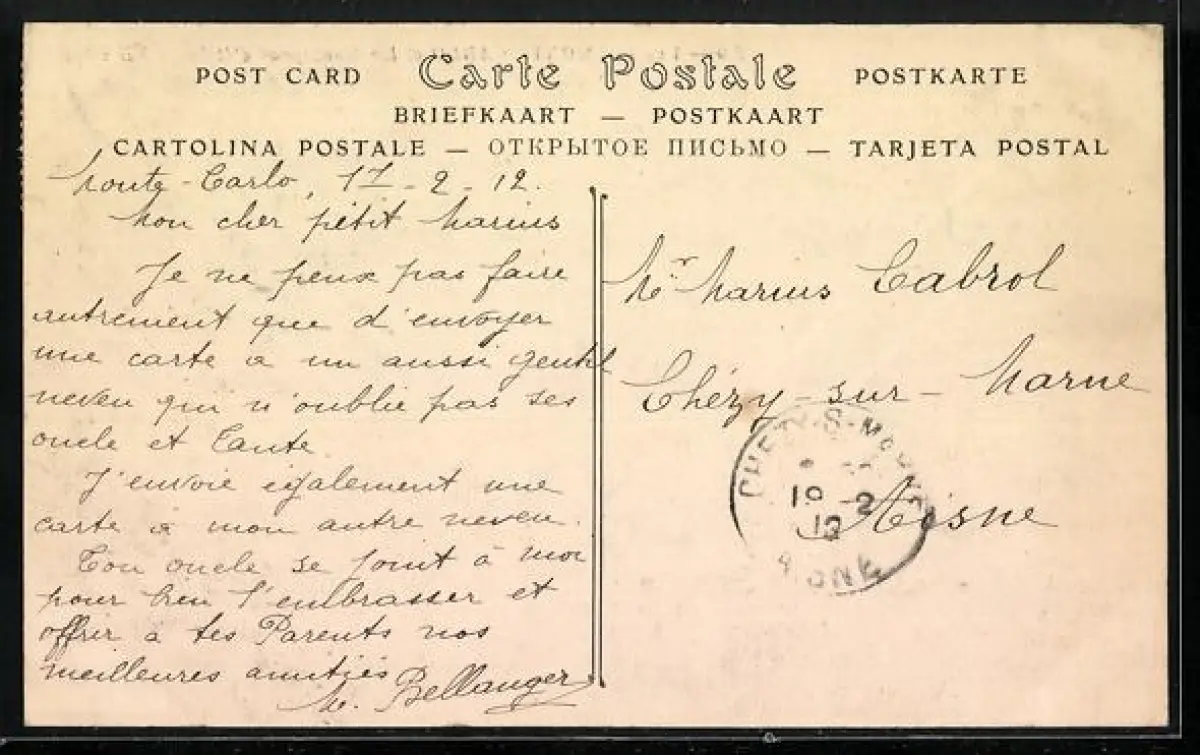 POST CARD Carte Postale POSTKARTE
BRIEFKAART — POSTKAART
CARTOLINA POSTALE — ОТКРЫТОЕ ПИСЬМО — TARJETA POSTAL
Monte-Carlo, 17-2-12.
Mon cher petit Marius
Je ne peux pas faire
autrement que d'envoyer
une carte a un aussi gentil
neveu qui n'oublie pas ses
oncle et Tante.
J'envoie également une
carte à mon autre neveu.
Ton oncle se joint à moi
pour bien t'embrasser et
offrir à tes Parents nos
meilleures amitiés
M. Bellanger
Mr Marius Cabrol
Chézy-sur-Marne
Aisne
19 -2
12